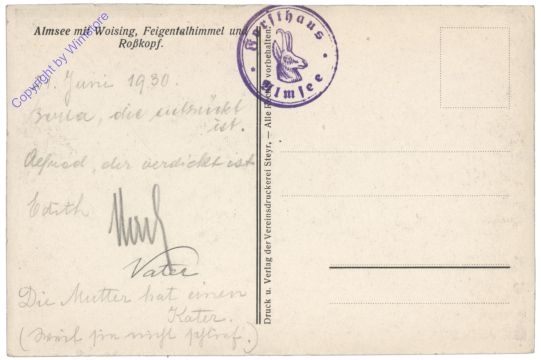 Almsee mit Woising, Feigentalhimmel und
Roßkopf.
Copyright by Wimmore
Forsthaus
Almsee
Juni 1930.
die entzückt
ist.
Alfred, der verdickt ist
Edith
Vater
Die Mutter hat einen
Kater.
(Weil sie nicht schlief.)
Druck u. Verlag der Vereinsdruckerei Steyr. — Alle Rechte vorbehalten.